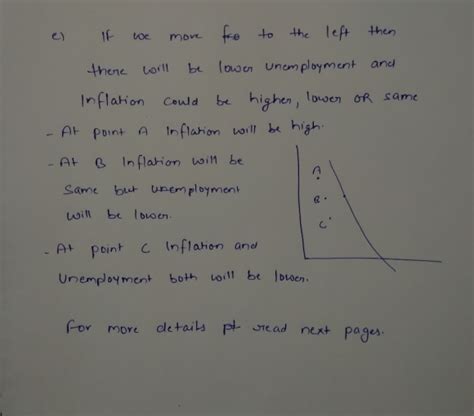 e) If we move to the left then
there will be lower unemployment and
Inflation could be higher, lower OR same
- At point A Inflation will be high.
- At B Inflation will be
same but unemployment
will be lower.
- At point C Inflation and
unemployment both will be lower.
A
B
C
For more details read next pages.